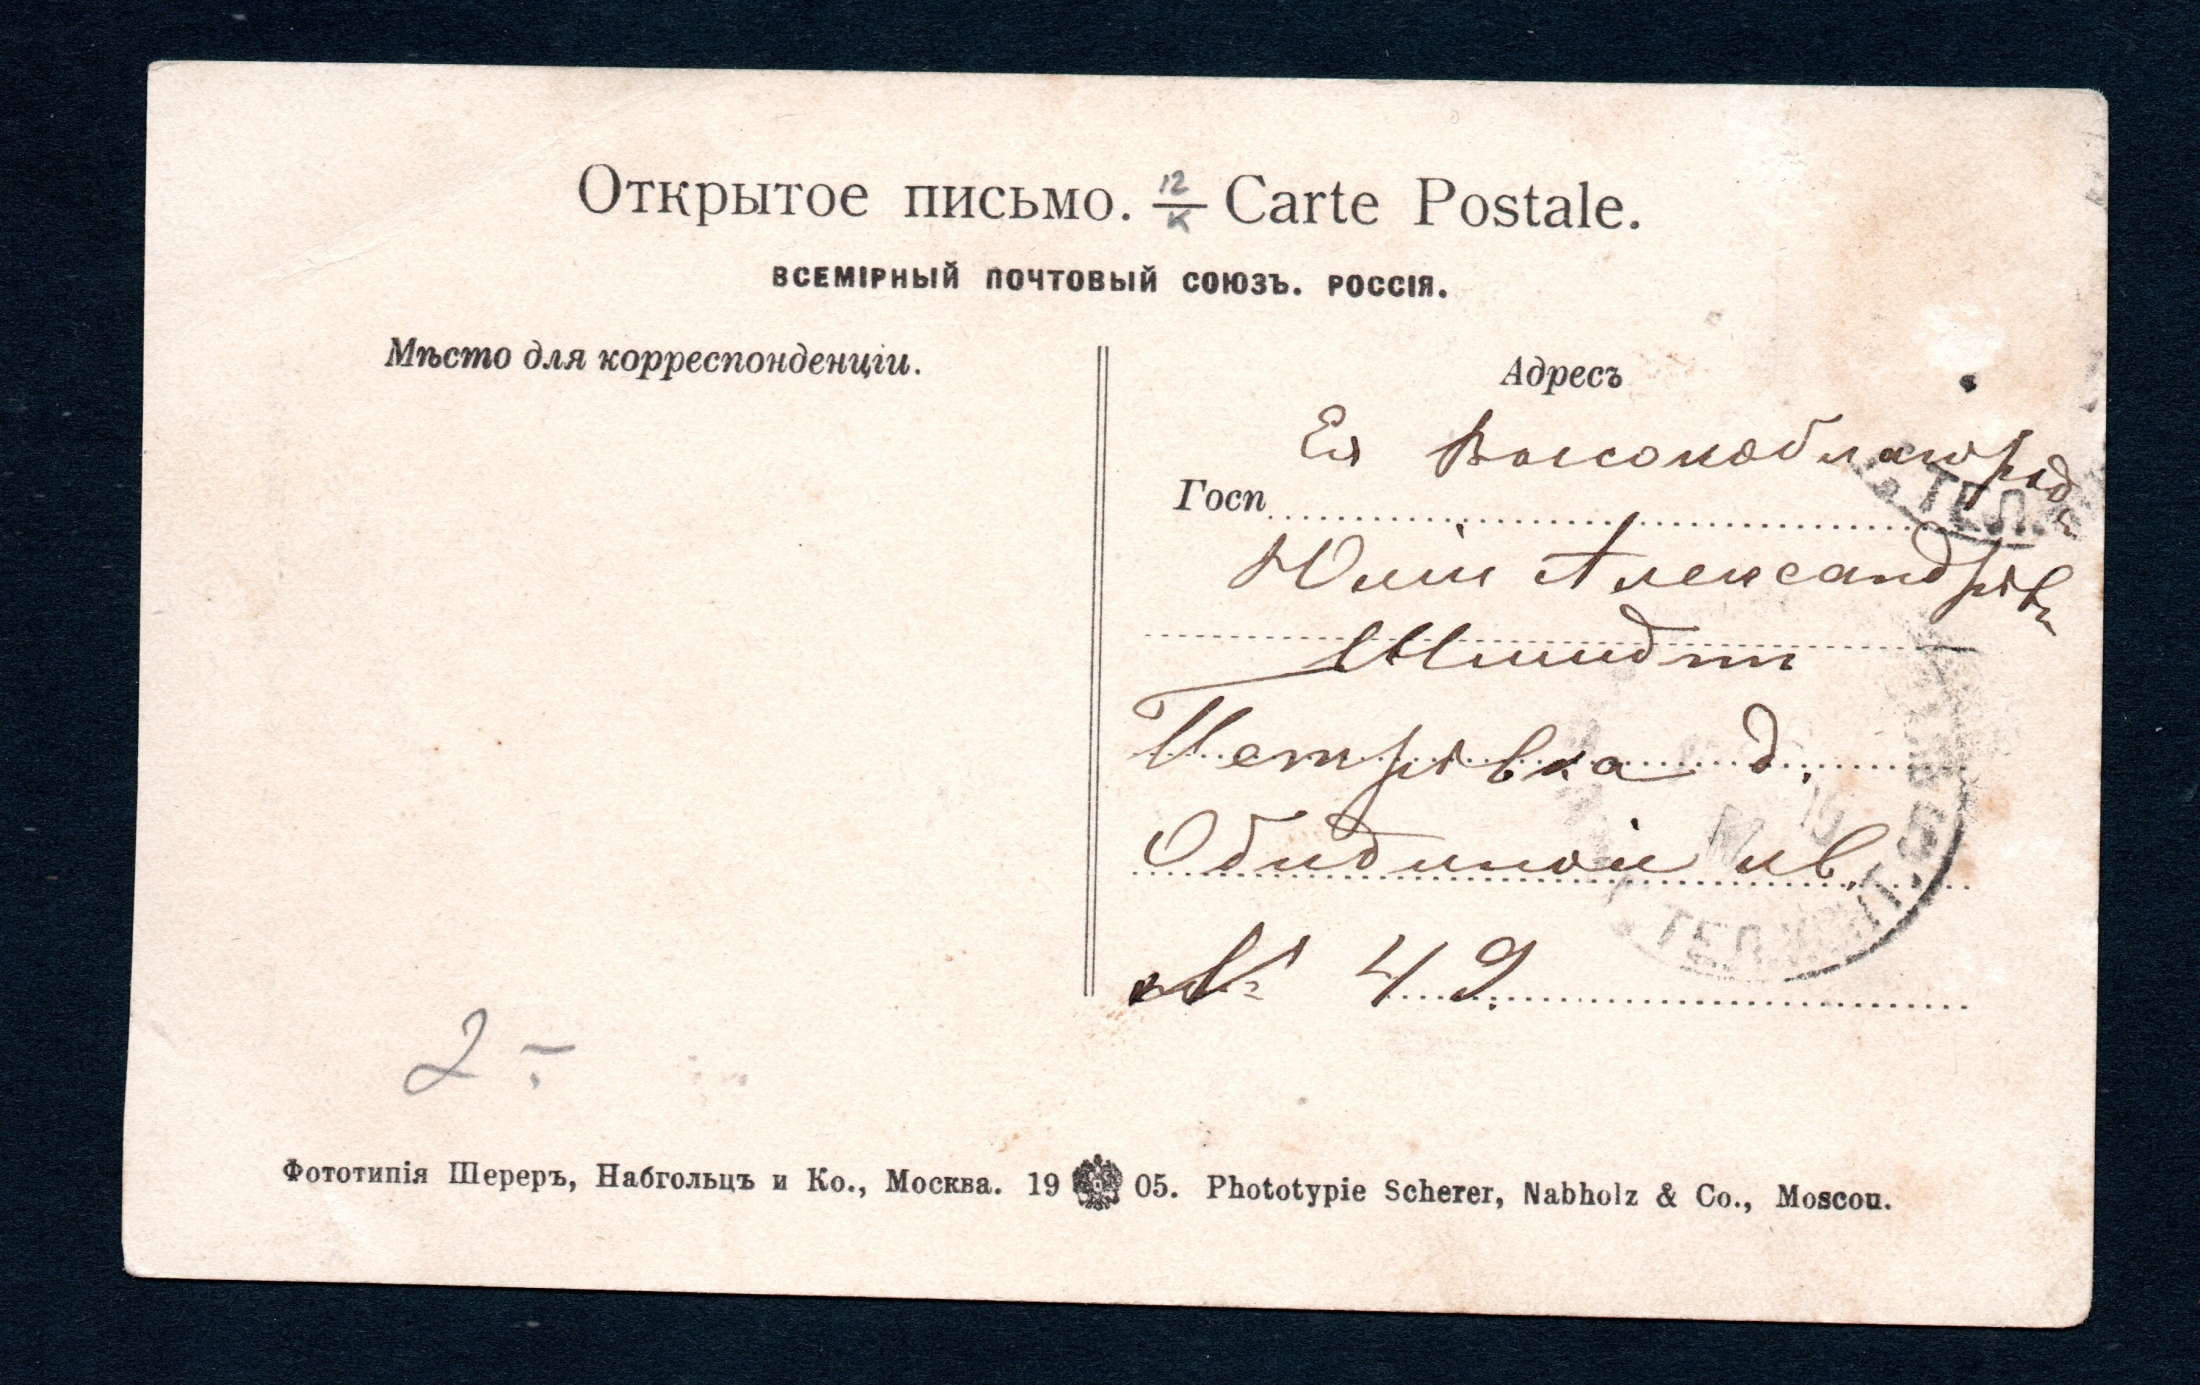 Открытое письмо. 12/К Carte Postale.
ВСЕМІРНЫЙ ПОЧТОВЫЙ СОЮЗЪ. РОССІЯ.
Мѣсто для корреспонденціи.
Адресъ
Ея Высокоблагород
Госп
ТЕЛ.
Юліи Александровн
Шмидтъ
Петровка д.
Обидиной кв.
№ 49.
ТЕЛ.
2-
Фототипія Шереръ, Набгольцъ и Ко., Москва. 19 05. Phototypie Scherer, Nabholz & Co., Moscou.